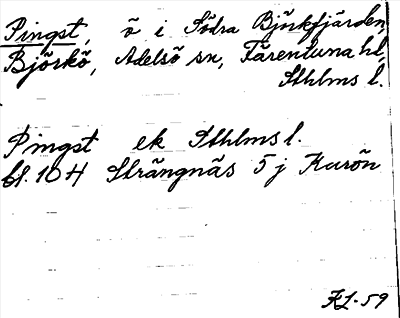 Pingst, ö i Södra Björkfjärden,
Björkö, Adelsö sn, Färentuna hd,
Sthlms l.
Pingst ek Sthlms l.
bl. 10 H Strängnäs 5 j Kurön
KL-59